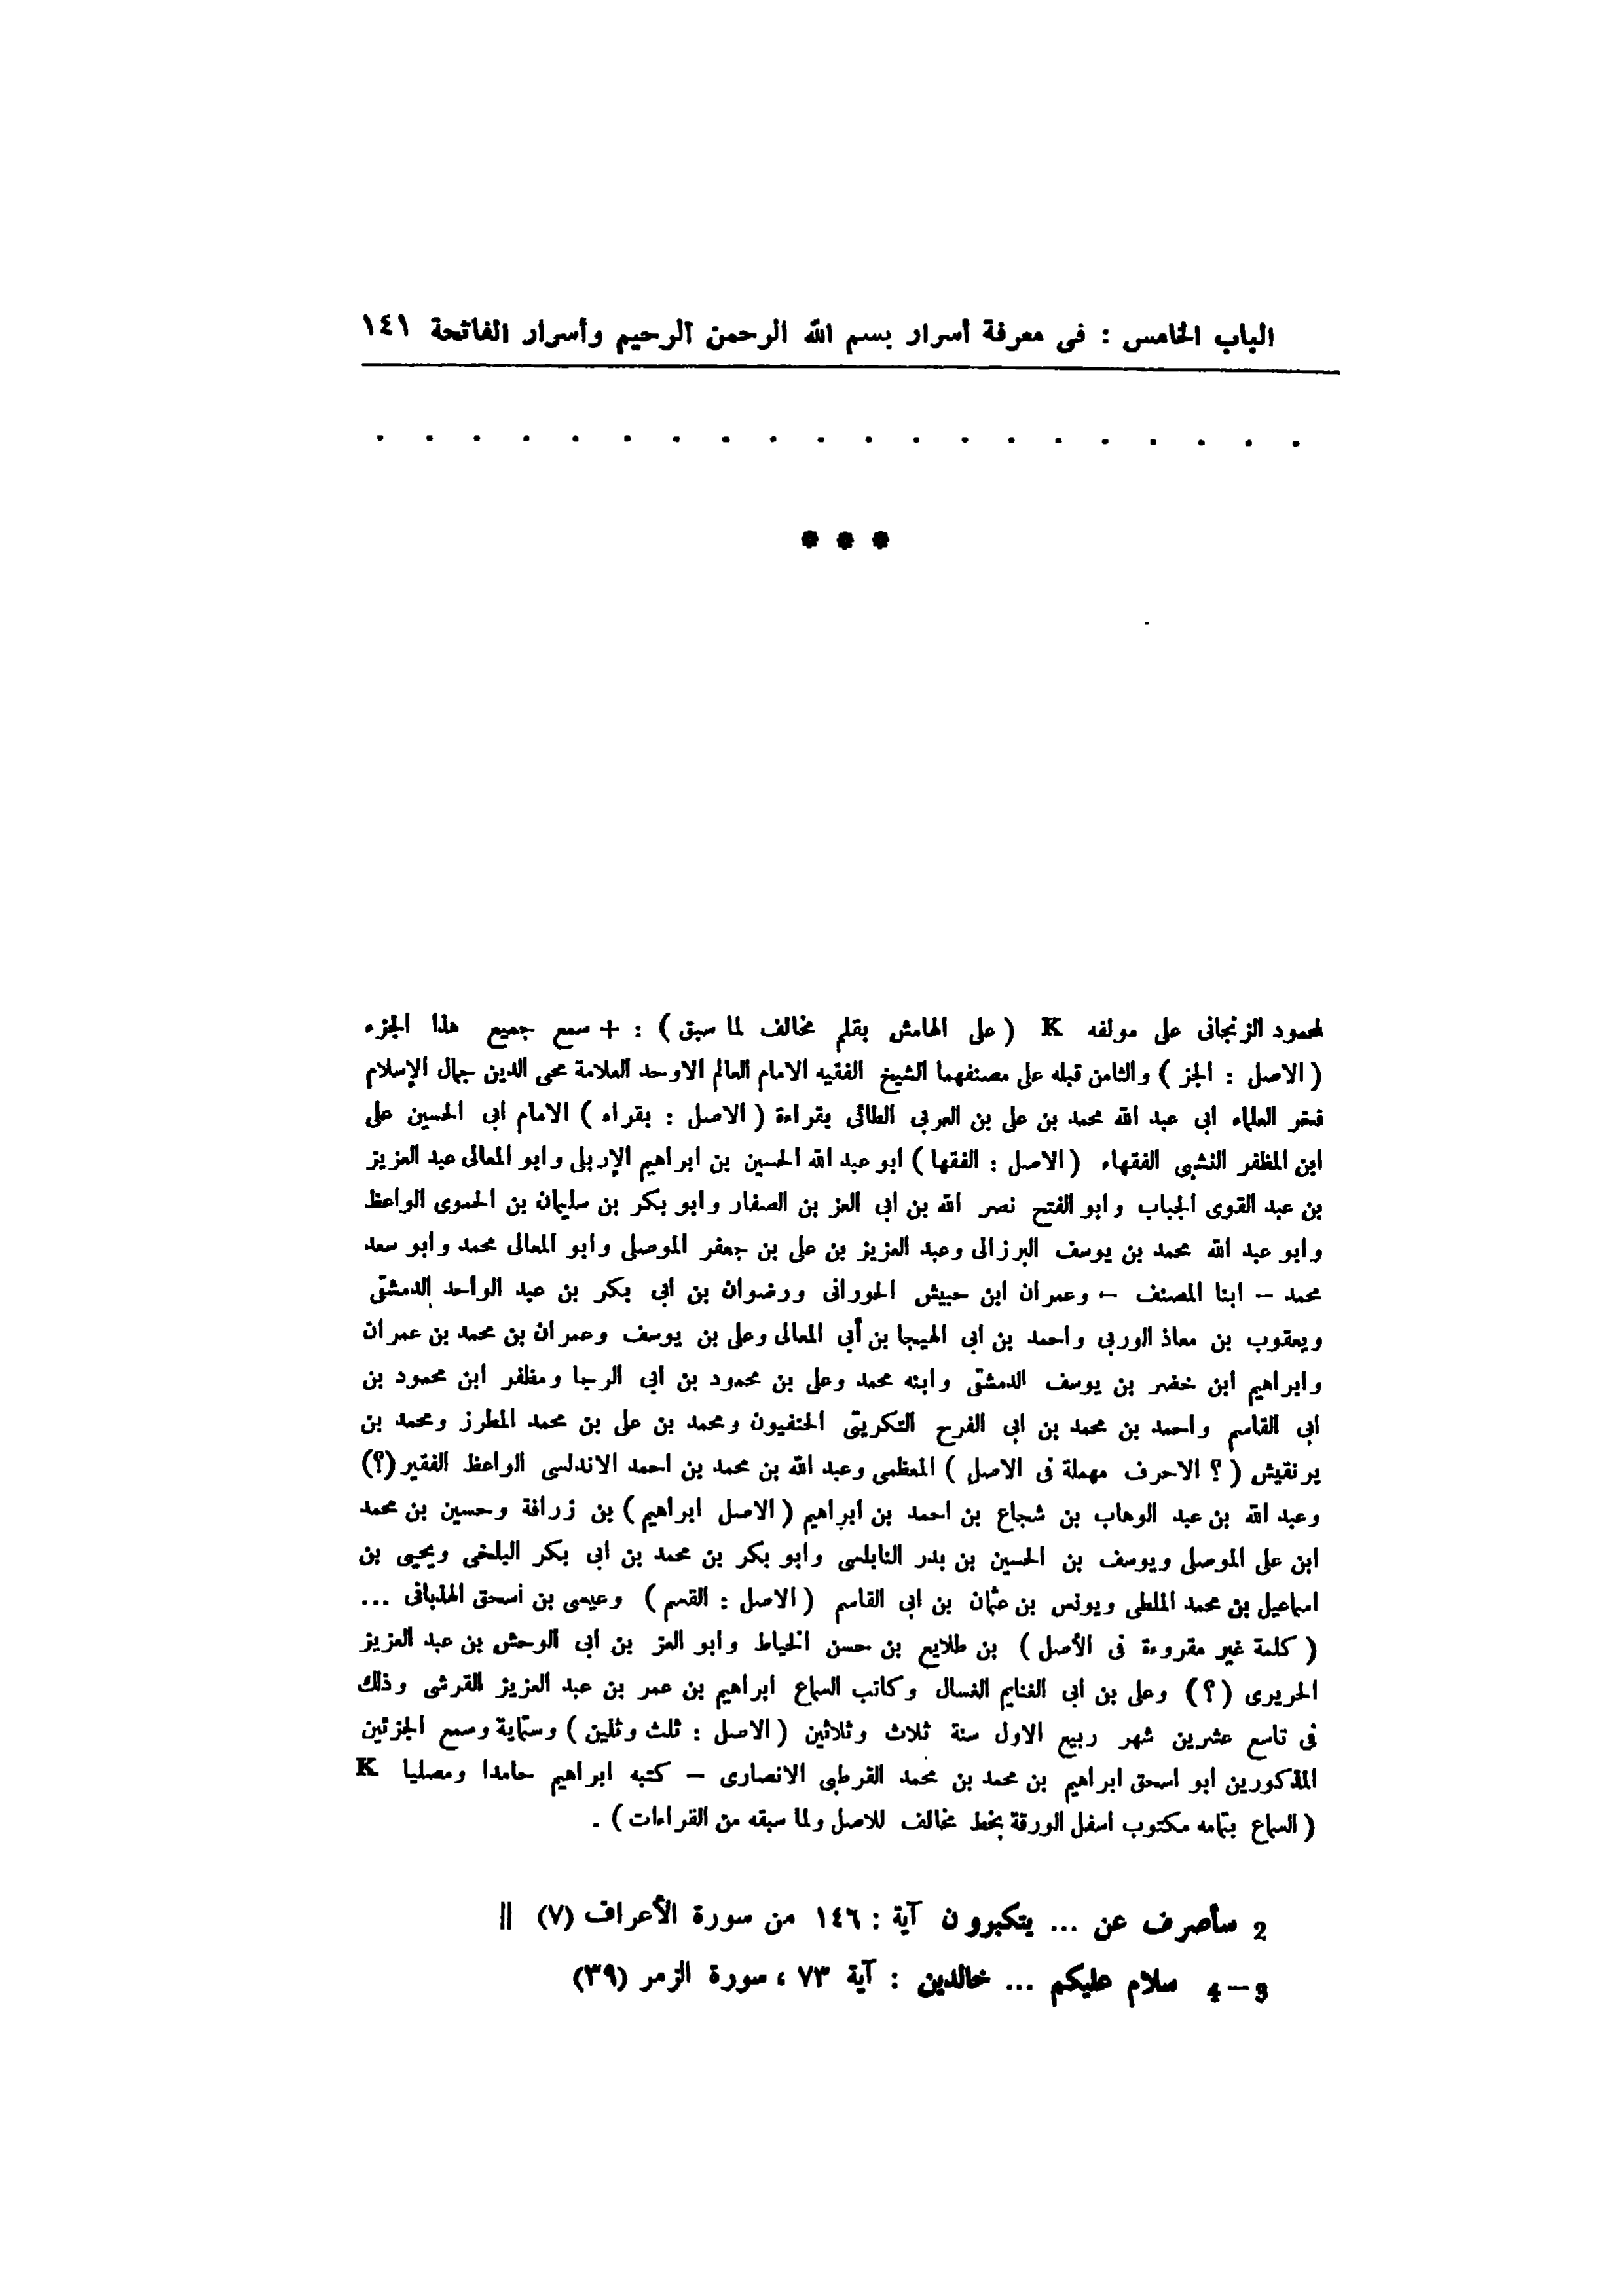 الباب الخامس : فى معرفة أسرار بسم الله الرحمن الرحيم وأسرار الفاتحة ١٤١
. . . . . . . . . . . . . . . . . . . .
* * *
لمحمود الزنجانى على مولفه K ( على الهامش بقلم مخالف لما سبق ) : + سمع جميع هذا الجزء
( الاصل : الجز ) والثامن قبله على مصنفهما الشيخ الفقيه الامام العالم الاوحد العلامة محى الدين جمال الإسلام
فخر العلماء ابى عبد الله محمد بن على بن العربى الطائى بقراءة ( الاصل : بقراه ) الامام ابى الحسين على
ابن المظفر النشبى الفقهاء ( الاصل : الفقها ) أبو عبد الله الحسين بن ابراهيم الإربلى وابو المعالى عبد العزيز
بن عبد القوى الجباب وابو الفتح نصر الله بن ابى العز بن الصفار وابو بكر بن سليمان بن الحموى الواعظ
وابو عبد الله محمد بن يوسف البرزالى وعبد العزيز بن على بن جعفر الموصلى وابو المعالى محمد وابو سعد
محمد – ابنا المصنف – وعمران ابن حبيش الحورانى ورضوان بن ابى بكر بن عبد الواحد الدمشقى
ويعقوب بن معاذ الوربى واحمد بن ابى الهيجا بن أبى المعالى وعلى بن يوسف وعمران بن محمد بن عمران
وابراهيم ابن خضر بن يوسف الدمشقى وابنه محمد وعلى بن محمود بن ابى الرجا ومظفر ابن محمود بن
ابى القاسم واحمد بن محمد بن ابى الفرح التكريتى الحنفيون ومحمد بن على بن محمد المطرز ومحمد بن
يرنقيش ( ؟ الاحرف مهملة فى الاصل ) المعظمى وعبد الله بن محمد بن احمد الاندلسى الواعظ الفقير (؟)
وعبد الله بن عبد الوهاب بن شجاع بن احمد بن ابراهيم ( الاصل ابراهيم ) بن زرافة وحسين بن محمد
ابن على الموصلى ويوسف بن الحسين بن بدر النابلسى وابو بكر بن محمد بن ابى بكر البلخى ويحيى بن
اسماعيل بن محمد الملطى ويونس بن عثمان بن ابى القاسم ( الاصل : القسم ) وعيسى بن اسحق الهذبانى ...
( كلمة غير مقروءة فى الأصل ) بن طلايع بن حسن الخياط وابو العز بن ابى الوحش بن عبد العزيز
الحريرى (؟) وعلى بن ابى الغنايم الغسال وكاتب السماع ابراهيم بن عمر بن عبد العزيز القرشى وذلك
فى تاسع عشرين شهر ربيع الاول سنة ثلاث وثلاثين ( الاصل : ثلث وثلين ) وستماية وسمع الجزئين
المذكورين ابو اسحق ابراهيم بن محمد بن محمد القرطبى الانصارى – كتبه ابراهيم حامدا ومصليا K
( السماع بتمامه مكتوب اسفل الورقة بخط مخالف للاصل ولما سبقه من القراءات ) .
2 سأصرف عن ... يتكبرون آية : ١٤٦ من سورة الأعراف (٧) ||
3–4 سلام عليكم ... خالدين : آية ٧٣ ، سورة الزمر (٣٩)